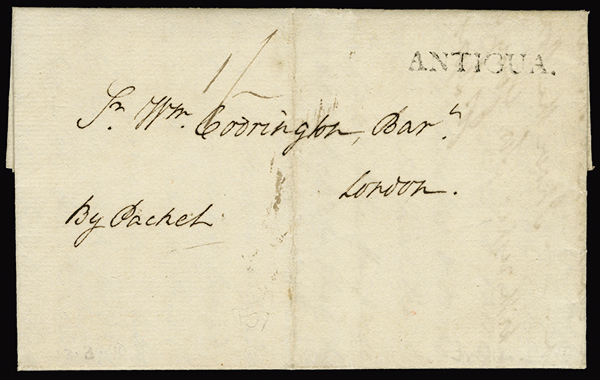 ANTIGUA.
1/
Sr. Wm. Codrington, Bart.
London.
By Packet